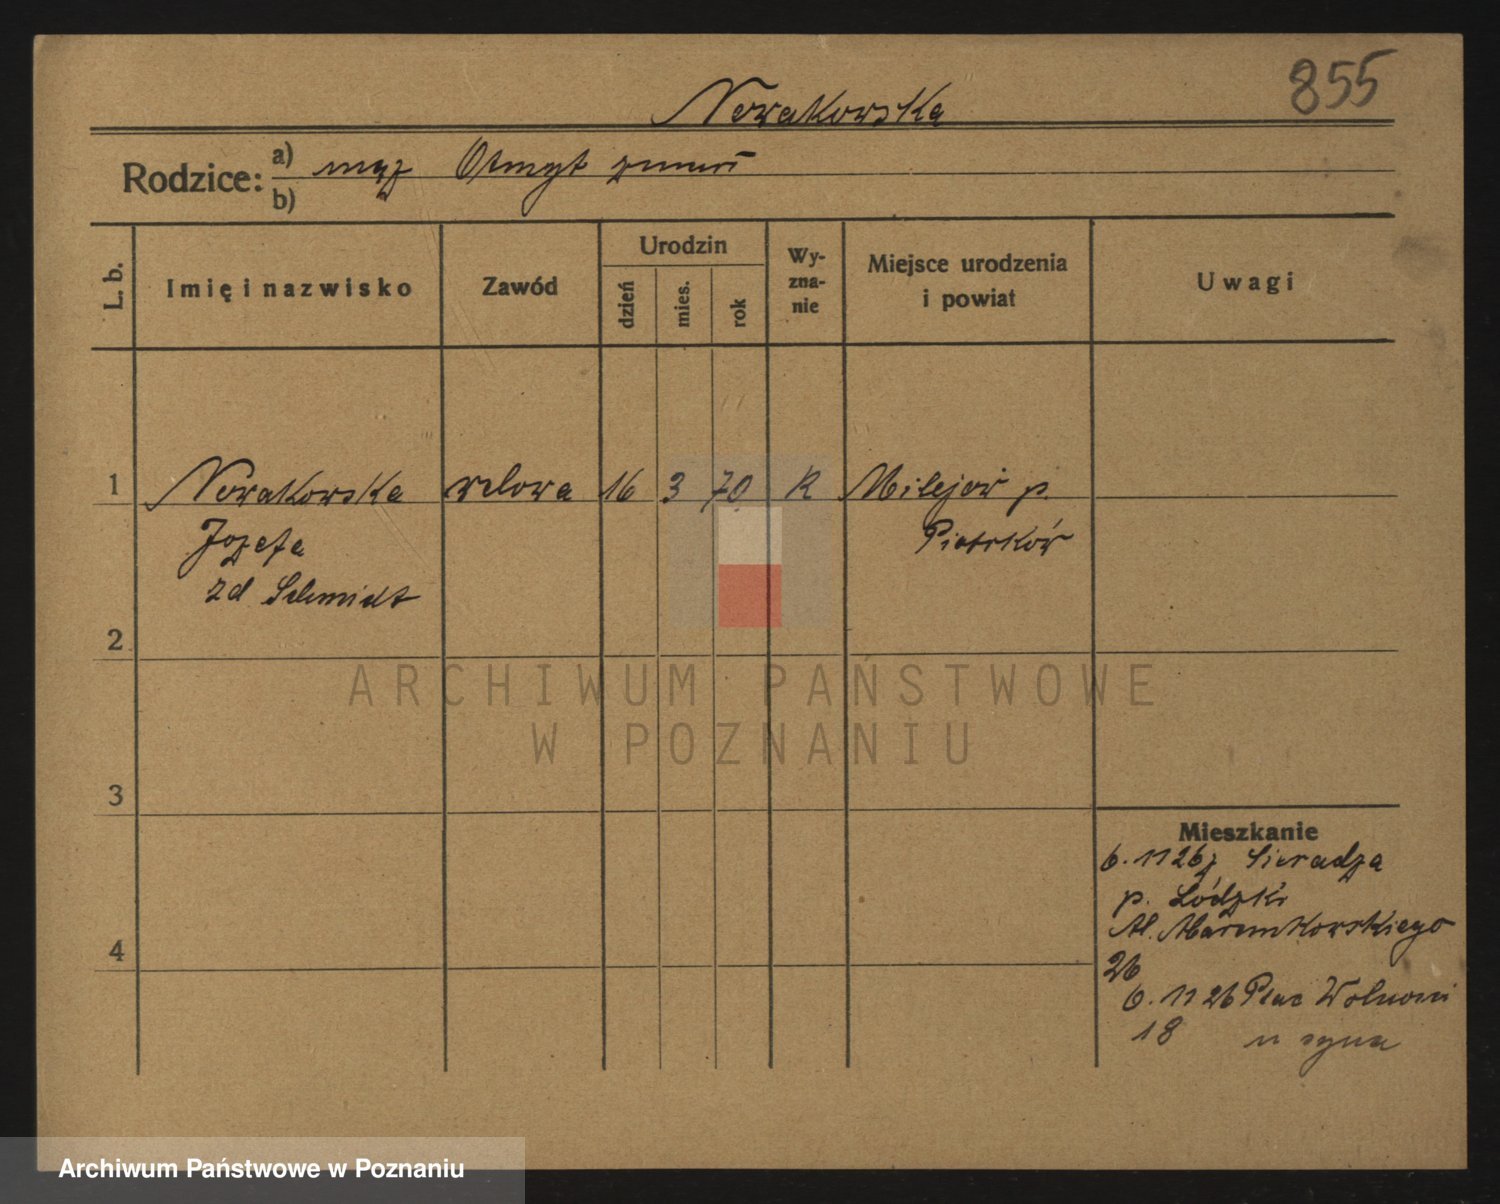 855
Nowakowska
Rodzice:
a) mąż
b)
L. b.
Imię i nazwisko
Zawód
Urodzin
dzień
mies.
rok
Wy-
zna-
nie
Miejsce urodzenia
i powiat
Uwagi
1 Nowakowska wdowa 16 3 70 K Milejow p.
Józefa Piotrków
zd Schmidt
2
3
4
Mieszkanie
6.11 26 z Sieradza
p. Łódzki
Al.
26
6.11 26 Plac Wolności
18 u syna
ARCHIWUM PAŃSTWOWE
W POZNANIU
Archiwum Państwowe w Poznaniu